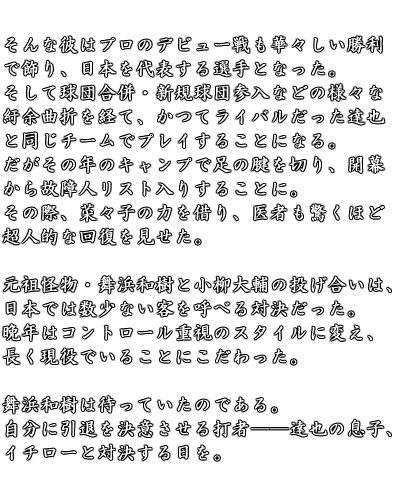 そんな彼はプロのデビュー戦も華々しい勝利
で飾り、日本を代表する選手となった。
そして球団合併・新規球団参入などの様々な
紆余曲折を経て、かつてライバルだった達也
と同じチームでプレイすることになる。
だがその年のキャンプで足の腱を切り、開幕
から故障人リスト入りすることに。
その際、菜々子の力を借り、医者も驚くほど
超人的な回復を見せた。
元祖怪物・舞浜和樹と小柳大輔の投げ合いは、
日本では数少ない客を呼べる対決だった。
晩年はコントロール重視のスタイルに変え、
長く現役でいることにこだわった。
舞浜和樹は待っていたのである。
自分に引退を決意させる打者――達也の息子、
イチローと対決する日を。